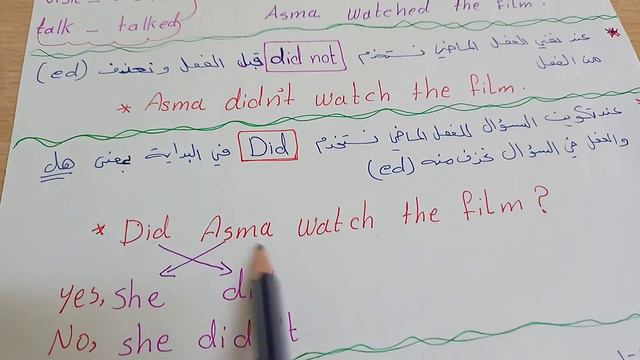 talk – talked
Asma watched the film.
* عند نفي الفعل الماضي نستخدم did not قبل الفعل ونحذف (ed)
من الفعل
* Asma didn't watch the film.
عند تكوين السؤال للفعل الماضي نستخدم Did في البداية بمعنى هل
والفعل في السؤال نحذف منه (ed)
* Did Asma watch the film?
Yes, she
No, she